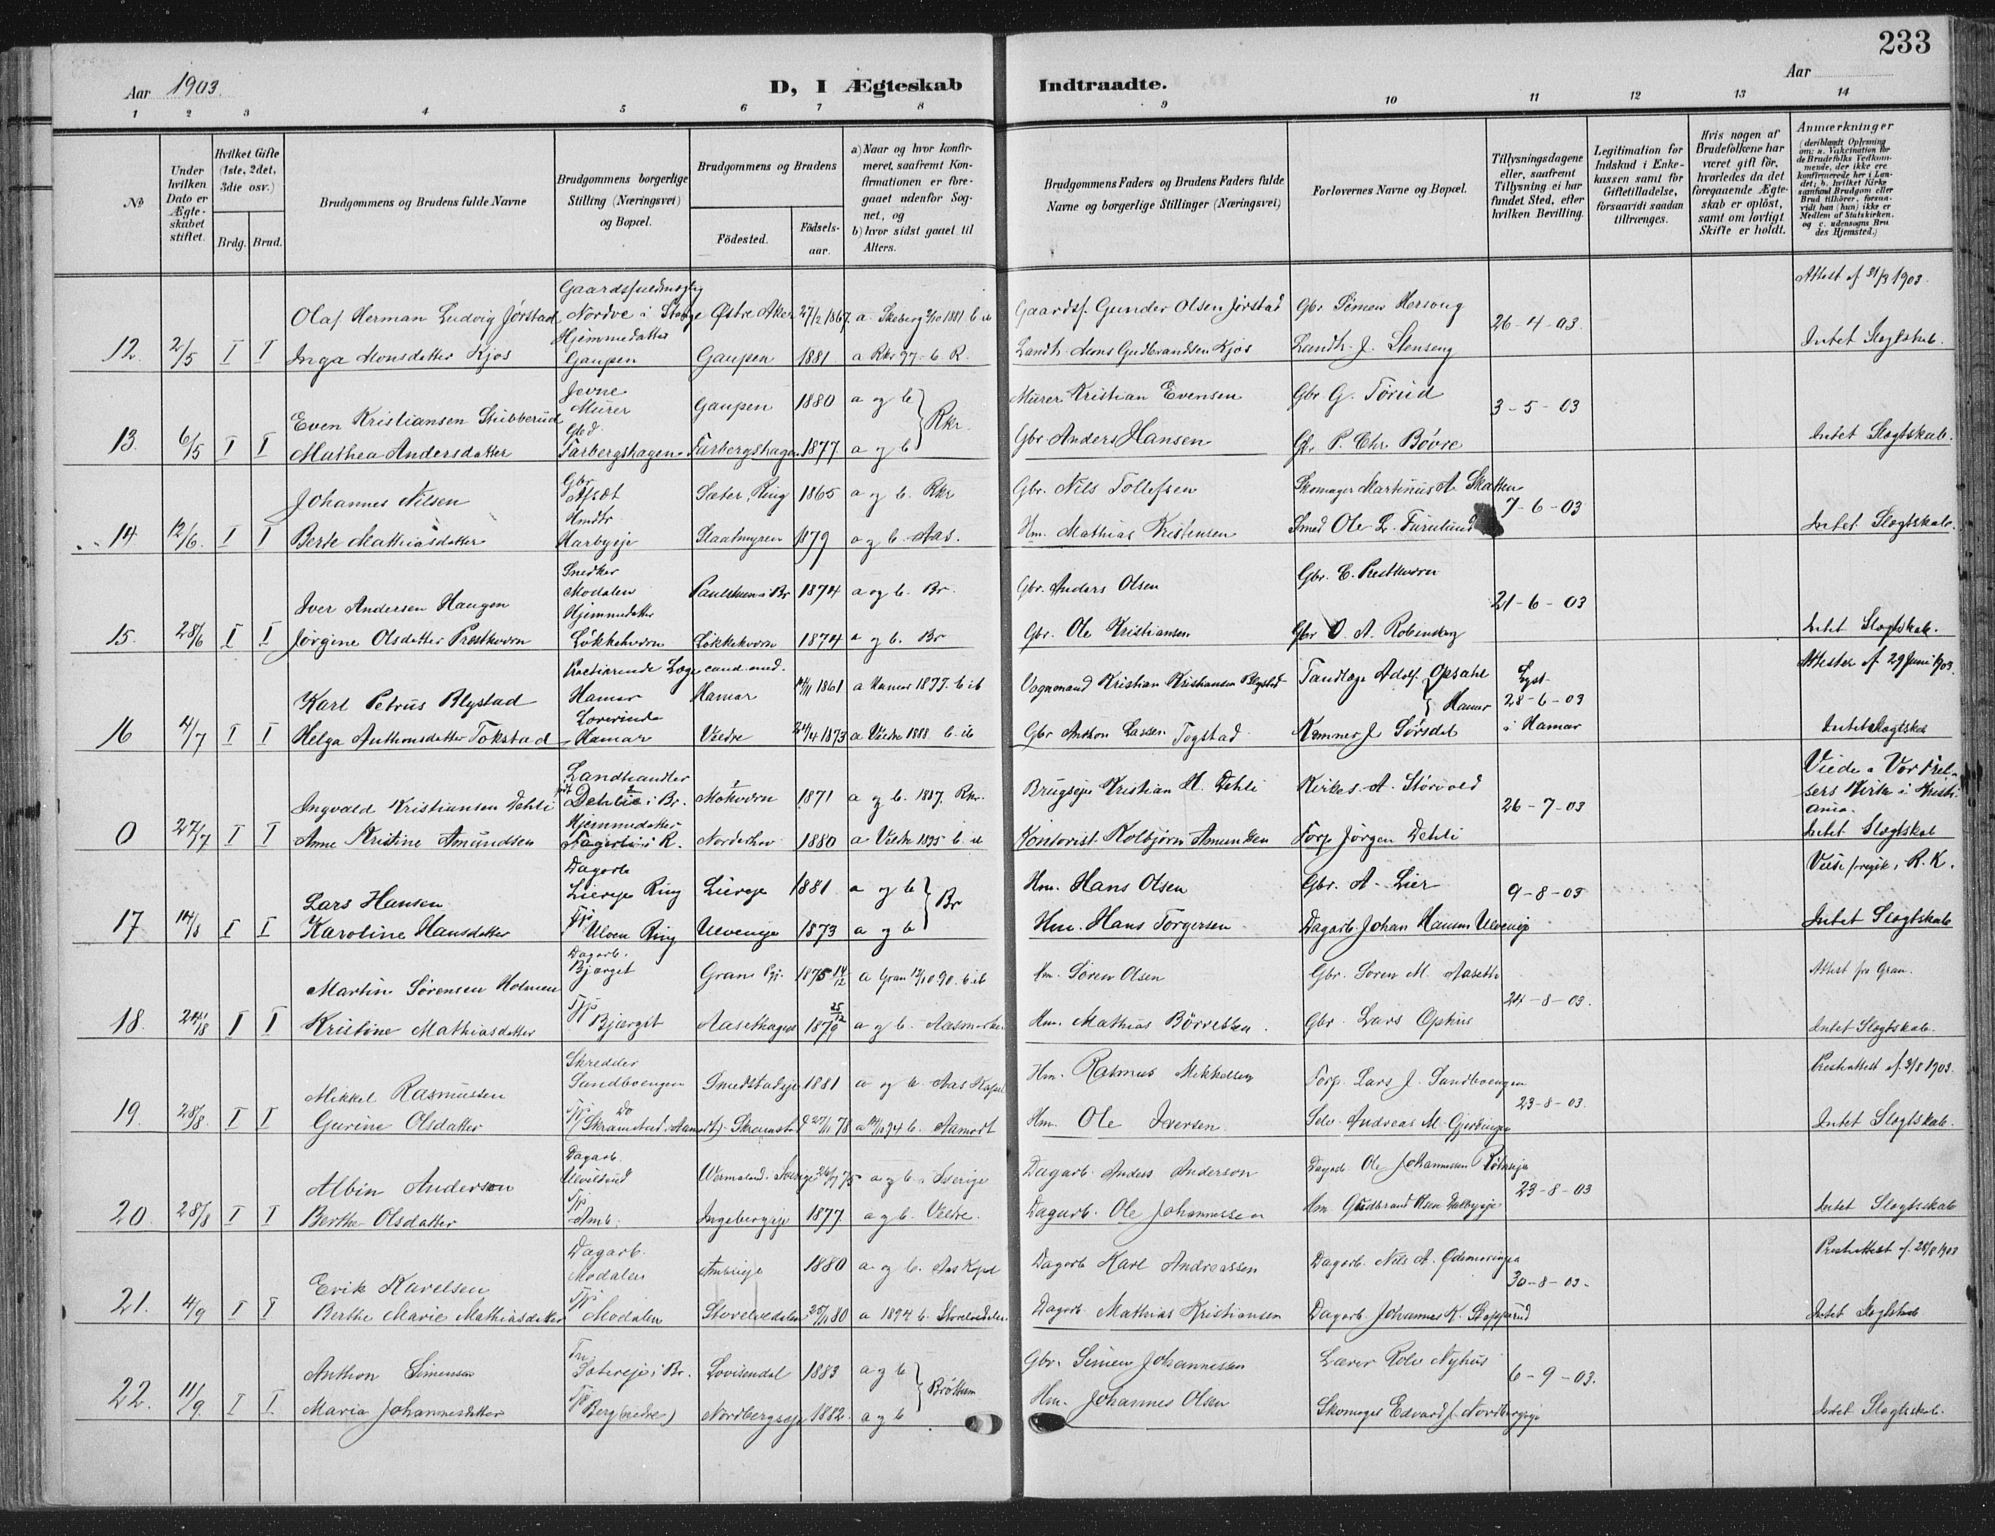 233
Aar 1903.
D, I Ægteskab Indtraadte.
Aar
1 2 3 4 5 6 7 8 9 10 11 12 13 14
№
Under hvilken Dato er Ægteskabet stiftet.
Hvilket Gifte (1ste, 2det, 3die osv.)
Brdg. Brud.
Brudgommens og Brudens fulde Navne
Brudgommens borgerlige Stilling (Næringsvei) og Bopæl.
Brudgommens og Brudens
Födested. Födselsaar.
a) Naar og hvor konfirmeret, saafremt Konfirmationen er foregaaet udenfor Sognet, og
b) hvor sidst gaaet til Alters.
Brudgommens Faders og Brudens Faders fulde Navne og borgerlige Stillinger (Næringsvei)
Forlovernes Navne og Bopæl.
Tillysningsdagene eller, saafremt Tillysning ei har fundet Sted, efter hvilken Bevilling.
Legitimation for Indskud i Enkekassen samt for Giftetilladelse, forsaavidt saadan tiltrænges.
Hvis nogen af Brudefolkene har været gift för, hvorledes da det foregaaende Ægteskab er oplöst, samt om lovligt Skifte er holdt.
Anmærkninger (deriblandt Oplysning om: a. Vakcination for de Brudefolks Vedkommende, der ikke ere konfirmerede her i Landet; b. hvilket Kirkesamfund Brudgom eller Brud tilhörer, forsaavidt han (hun) ikke er Medlem af Statskirken, og c. udensogns Brudes Hjemsted.)
Gaardsfuldmægtig Attest af 31/3 1903.
Olaf Herman Ludvig Jørstad Nordve i Stange Østre Aker 27/2 1867. a Gaardsf. Gunder Olsen Jørstad Gbr Simen Hersoug
Hjemmedatter 26-4-03
12. 2/5 I I Inga Monsdatter Kjos Gaupen Gaupen 1881 a Rkr 97 - b R. Landh. Mons Gudbrandsen Kjos Landh. J. Stenseng Intet Slægtskab.
Jevne
Even Kristiansen Stubberud Murer Gaupen 1880 a og b } Rkr. Murer Kristian Evensen Gbr G. Torud 3-5-03
13. 6/5 I I Mathea Andersdatter Farbergshagen Farbergshagen 1877 a og b Gbr Anders Hansen Gbr P. Chr. Bövre Intet Slægtskab.
Gbr
Johannes Nilsen Sæter, Ring 1865 a og b. Rkr Gbr. Nils Tollefsen Skomager Martinus A. Skatten 7-6-03
14. 12/6. I I Berte Mathiasdatter Harbyeje Slaatmyren 1879 a og b. Aas. Hm. Mathias Kristensen Smed Ole L. Furulund Intet Slægtskab.
Snedker
Iver Andersen Haugen Modalen 1874 a og b. Br. Gbr. Anders Olsen Gbr. E. Prestkværn
Hjemmedatter 21-6-03
15. 28/6 I I Jørgine Olsdatter Prestkværn Løkkekværn Løkkekværn 1874 a og b. Br Gbr. Ole Kristiansen Gbr O. A. Intet Slægtskab.
Practiserende Læge cand. med. Attester af 29 Juni 1903.
Karl Petrus Blystad Hamar Hamar 1861 a Hamar 1877. b. ib Vognmand Kristian Kristiansen Blystad Tandlæge Adolf Opsahl } Hamar Lyst 28-6-03
16 4/7 I I Helga Anthonsdatter Tokstad Hamar Veldre 1873 a Veldre 1888 b. ib Gbr Anthon Larsen Togstad Kemner J. Sørsdal i Hamar Intet Slægtskab
Landhandler
Ingvald Kristiansen Dehli Dehlie i Br. Mokværn 1871 a og b. 1887. Rkr. Brugseje Kristian H. Dehli Kirkes. A. Storvold 26-7-03 Viede i Vor Frelsers Kirke i Kristiania.
Hjemmedatter
0 27/7 I I Anne Kristine Amundsen Norderhov 1880 a Veldre 1895 b. ib Kontorist Kolbjørn Amundsen Forp Jörgen Dehli Intet Slægtskab
Dagarb.
Lars Hansen Liereje Ring Liereje 1881. a og b } Br Hm. Hans Olsen Gbr. A. Lier 9-8-03
17 14/8 I I Karoline Hansdatter Ulven Ring Ulveneje 1873 a og b Hm. Hans Torgersen Dagarb. Johan Hansen Ulveneje Intet Slægtskab
Dagarb.
Martin Sørensen Holmen Bjærget Gran 1875 14/12 a Gran 90. b ib Hm. Søren Olsen Gbr. Soren M. Aaseth 24-8-03. Attest fra Gran.
18. 24/8 I I Kristine Mathiasdatter Bjærget Aasethagen 1879 25/12 a og b. Hm. Mathias Börresen. Gbr. Lars Ophus Intet Slægtskab.
Skredder
Mikkel Rasmussen Sandboengen Smedstadeje 1881 a og b Aas Kapel Hm. Rasmus Mikkelsen Forp. Lars J. Sandboengen 23-8-03. Prestattest af 3/8 1903.
19. 28/8. I I Gurine Olsdatter Skramstad, Aamodt b. Aamodt Hm. Ole Iversen Selv. Andreas M. Intet Slægtskab.
Dagarb.
Albin Anderson Ulvilsrud Wermeland, Sverige 75 a og b i Sverige Dagarb. Anders Anderson Dagarb Ole Johannessen 23-8-03
20. 28/8 I I Berthe Olsdatter Ingebergseje 1877 a og b. Veldre. Dagarb. Ole Johannessen Hm. Gudbrand Olsen Intet Slægtskab
Dagarb.
Erik Karelsen Modalen 1880 a og b. Aas Kpl Dagarb Karl Andreassen Dagarb. Nils A. 30-8-03. Prestattest af 28/8 1903
21. 4/9 I I Berthe Marie Mathiasdatter Modalen Storelvedalen 80 a 1894 b. Storelvedalen Dagarb Mathias Kristiansen Dagarb Johannes K. Intet Slægtskab
Anthon Simensen i Br. Lovisendal 1883 a og b } Brøttum Gbr. Simen Johannessen Lærer Rolv Nyhus 6-9-03.
22. 11/9. I I Maria Johannesdatter Berg (Veldre) Nordbergseje 1882. a og b Hm. Johannes Olsen Skomager Edvard J. Nordbergseje Intet Slægtskab.